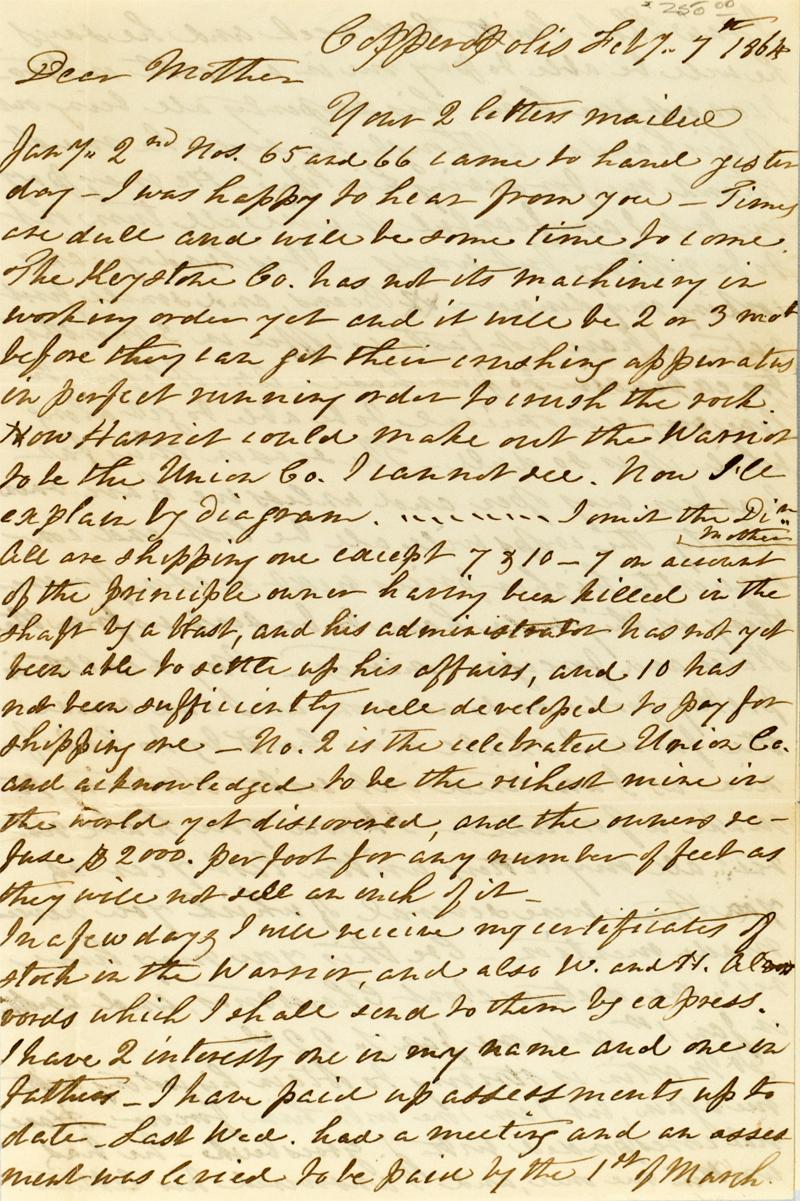 $250 00
Copperopolis Feby. 7th 1864
Dear Mother
Your 2 letters mailed
Jany. 2nd Nos. 65 and 66 came to hand yester
day – I was happy to hear from you – Times
are dull and will be some time to come.
The Keystone Co. has not its machinery in
working order yet and it will be 2 or 3 mos
before they can get their crushing apparatus
in perfect running order to crush the rock.
How Harriet could make out the Warrior
to be the Union Co. I cannot see. Now I'll
explain by diagram. . . . . . . . I omit the Dim
Mother
All are shipping ore except 7 & 10 – 7 on account
of the principle owner having been killed in the
shaft by a blast, and his administrator has not yet
been able to settle up his affairs, and 10 has
not been sufficiently well developed to pay for
shipping ore – No. 2 is the celebrated Union Co.
and acknowledged to be the richest mine in
the world yet discovered, and the owners re-
fuse $2000. per foot for any number of feet as
they will not sell an inch of it –
In a few days I will receive my certificates of
stock in the Warrior, and also W. and H. Al
words which I shall send to them by express.
I have 2 interests one in my name and one in
fathers – I have paid up assessments up to
date – Last Wed. had a meeting and an assess
ment was levied to be paid by the 1st of March.